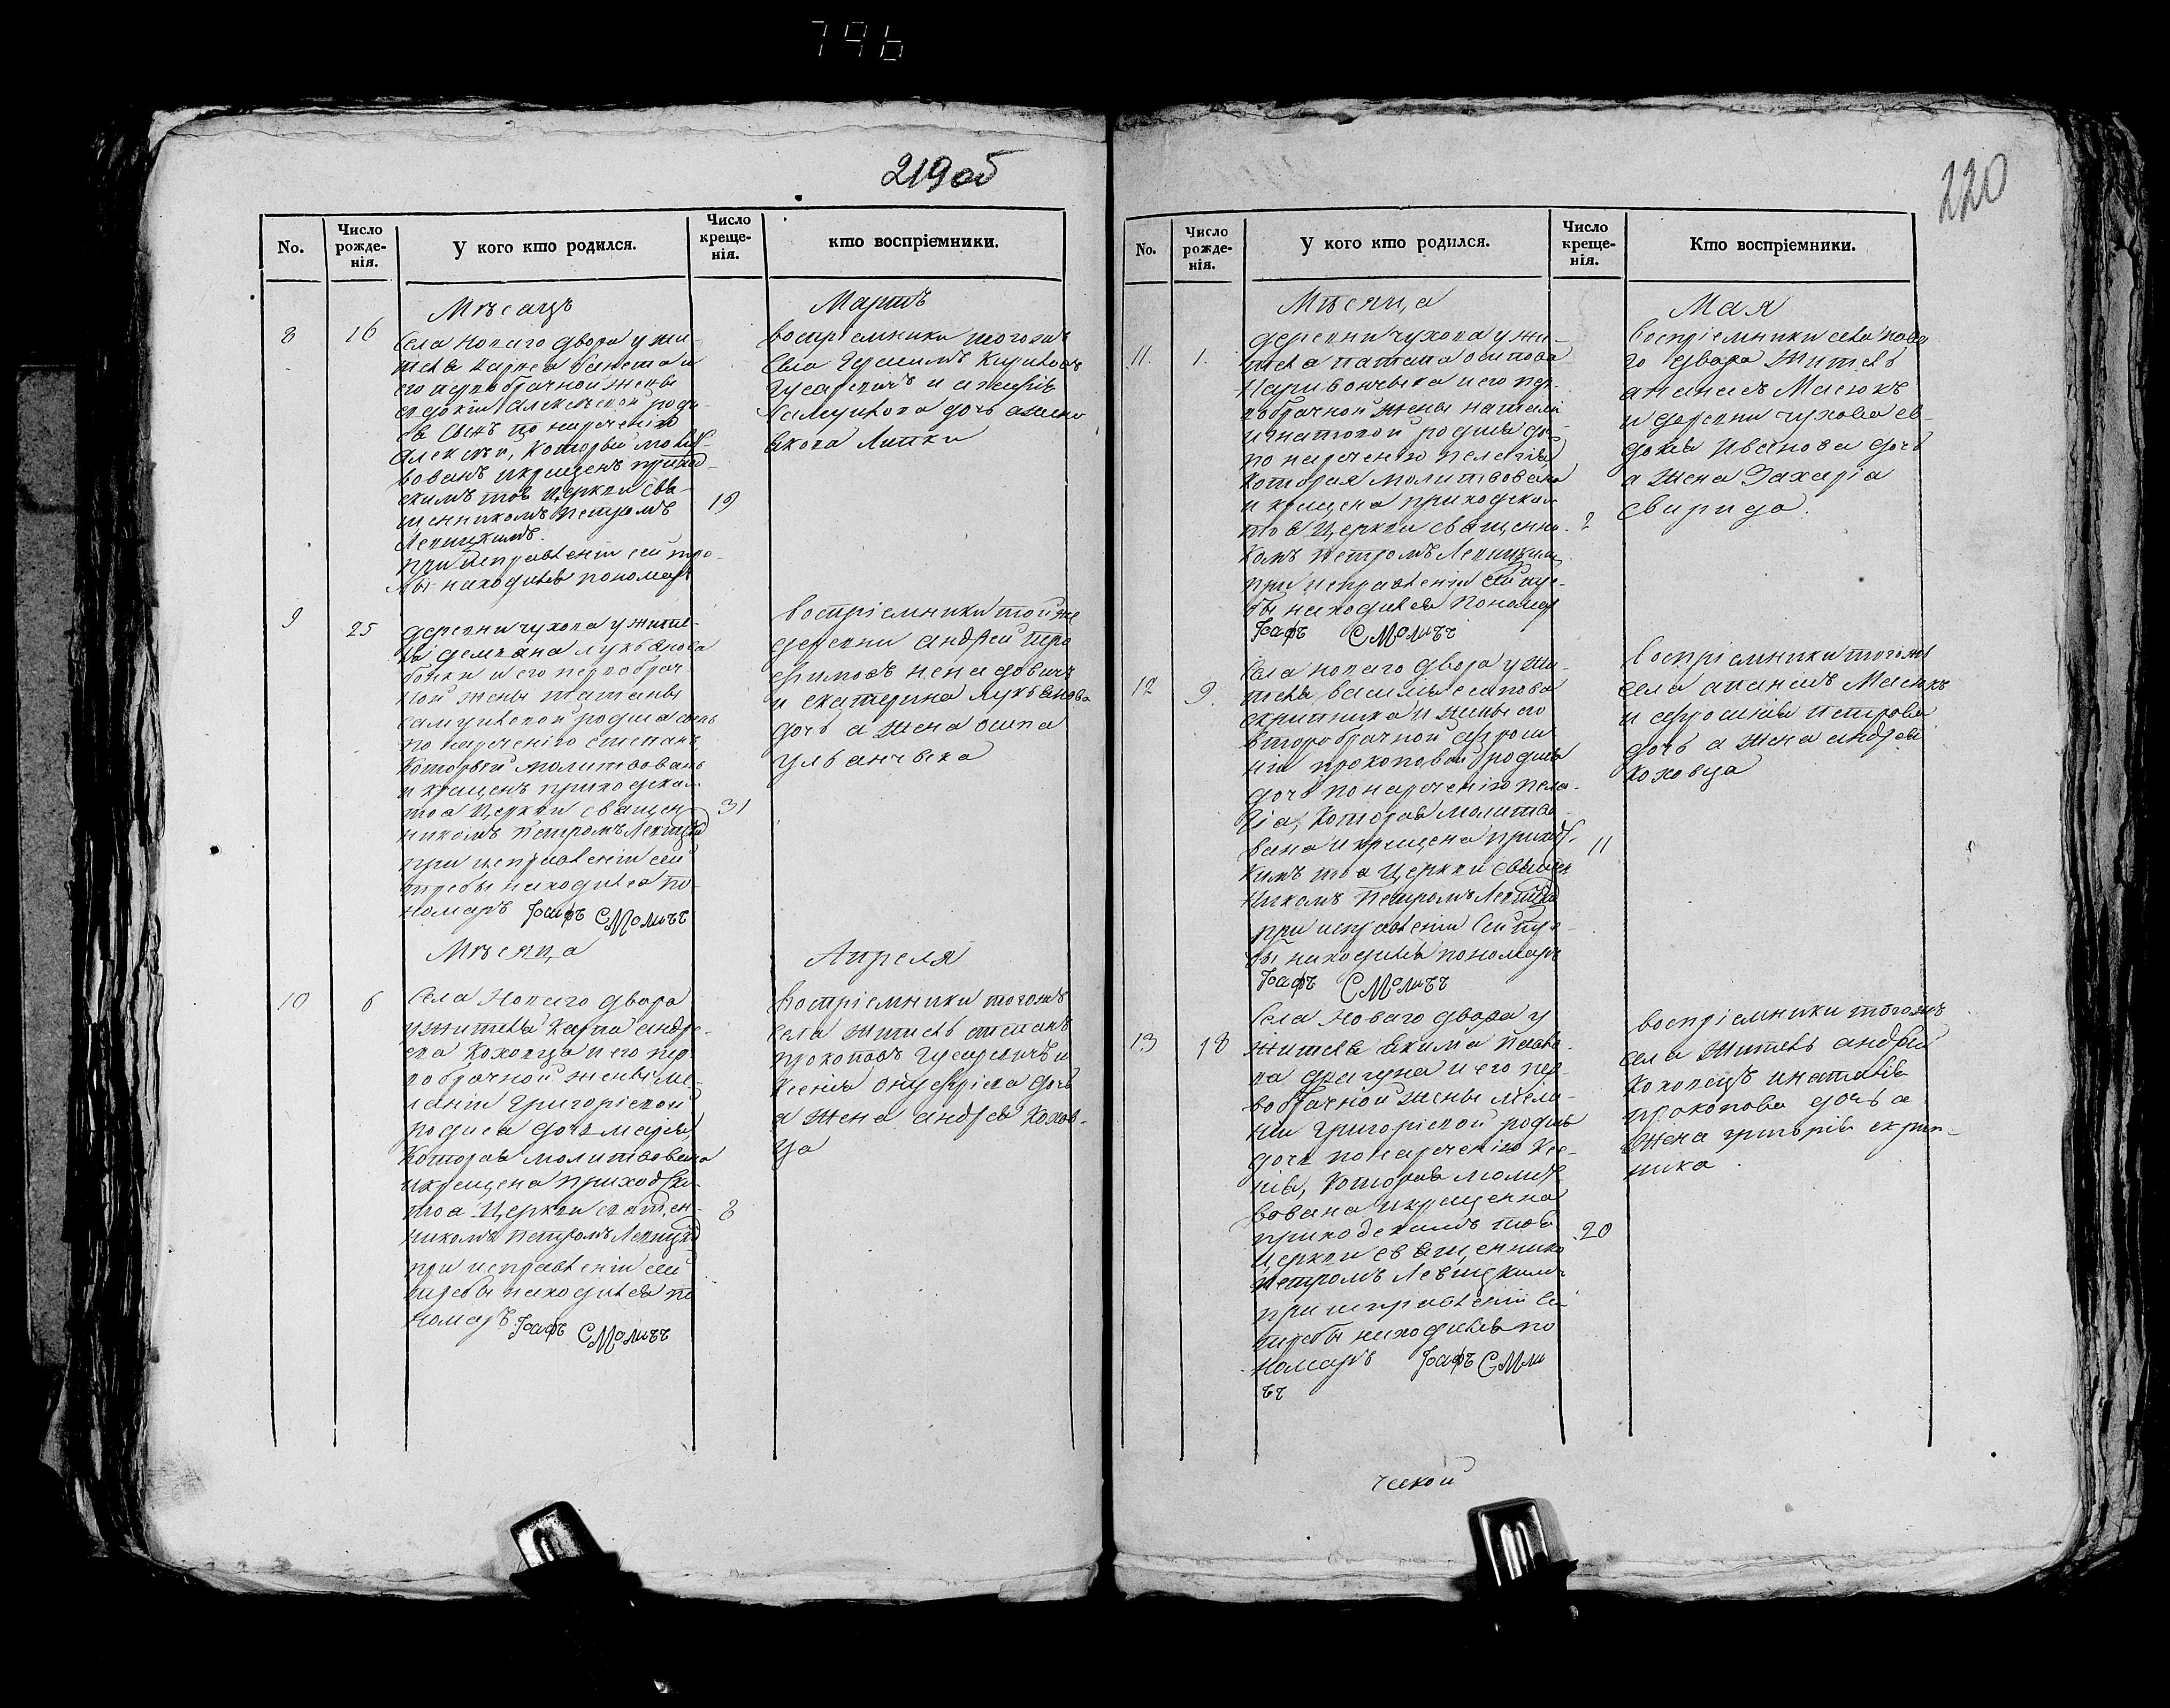 796
219об
No.
Число рожденія.
У кого кто родился.
Число крещенія.
кто воспріемники.
Мѣсяцъ
Мартъ
8
16
Села Новаго двора у жи-
теля
его первобрачной жены
роди-
ся сынъ по нареченію
Алексѣй, который молит-
вованъ и крещенъ приход-
скимъ тоя церкви свя-
щенникомъ Петромъ
Левицкимъ.
19
при исправленіи сей тре-
бы находился пономаръ
воспріемники тогожъ
села Герасимъ
Гусаревичъ и
дочь а жена
Якова Липки
9
25
деревни Чухова у жите-
ля Демяна Лукьянова
и его первобрач
ной жены Татьяны
Самуиловой родися сынъ
по нареченію Степанъ
который молитвованъ
и крещенъ приходским
тоя церкви священ-
никомъ Петромъ Левицки
31
при исправленіи сей
требы находился по-
номаръ Іоафъ Смоличъ
воспріемники той же
деревни Андрей
и Екатерина Лукьянова
дочь а жена Осипа
Ульянчика
Мѣсяца
Апреля
10
6
Села Новаго двора
у жителя Карпа Андре-
ева Коховца и его пер-
вобрачной жены Ме-
ланіи Григоріевой
родися дочь Марія,
которая молитвована
и крещена приходски
тоя церкви священ-
никомъ Петромъ Левицки
8
при исправленіи сей
требы находился по
номаръ Іоафъ Смоличъ
воспріемники тогожъ
села житель Степанъ
Прокоповъ Гусаревичъ и
Ксенія Онуфріева дочь
а жена Андрея Кохов-
ца
220
No.
Число рожденія.
У кого кто родился.
Число крещенія.
Кто воспріемники.
Мѣсяца
Мая
11.
1.
деревни Чухова у жи-
теля Патапа Осипова
и его пер-
вобрачной жены Наталіи
Игнатовой родися доч-
по нареченію Пелагія,
которая молитвована
и крещена приходским
тоя церкви священни-
2
комъ Петромъ Левицким
при исправленіи сей тре-
бы находился пономар
Іоафъ Смоличъ
воспріемники села Нова
го двора житель
Ананій Масюкъ
и деревни Чухова Ев-
докія Иванова дочь
а жена Захарія
Свирида.
12
9.
Села Новаго двора у жи-
теля Василія Осипова
Скрипника и жены его
второбрачной Афроси-
ніи Прокоповой родися
дочь по нареченію Пела-
гіа, которая молитво
вана и крещена приход-
11
кимъ тоя церкви священ
никомъ Петромъ Левицки
при исправленіи сей тре-
бы находился пономаръ
Іоафъ Смоличъ
воспріемники тогожъ
села Ананій Масюкъ
и Афросинія Петрова
дочь а жена Андрея
Коховца
13
18
Села Новаго двора у
жителя Якима Павло-
ва Драгуна и его пер-
вобрачной жены Мела-
ніи Григоріевой родися
дочь по нареченію Ксе-
нія, которая молит
вована и крещенна
приходскимъ тоя
20
церкви священнико
Петромъ Левицкимъ
при исправленіи сей
требы находился по
номаръ Іоафъ Смоли
чъ
воспріемники тогожъ
села житель Андрей
Коховецъ и Наталія
Прокопова дочь а
жена Григорія Скрип-
ника.
ческой